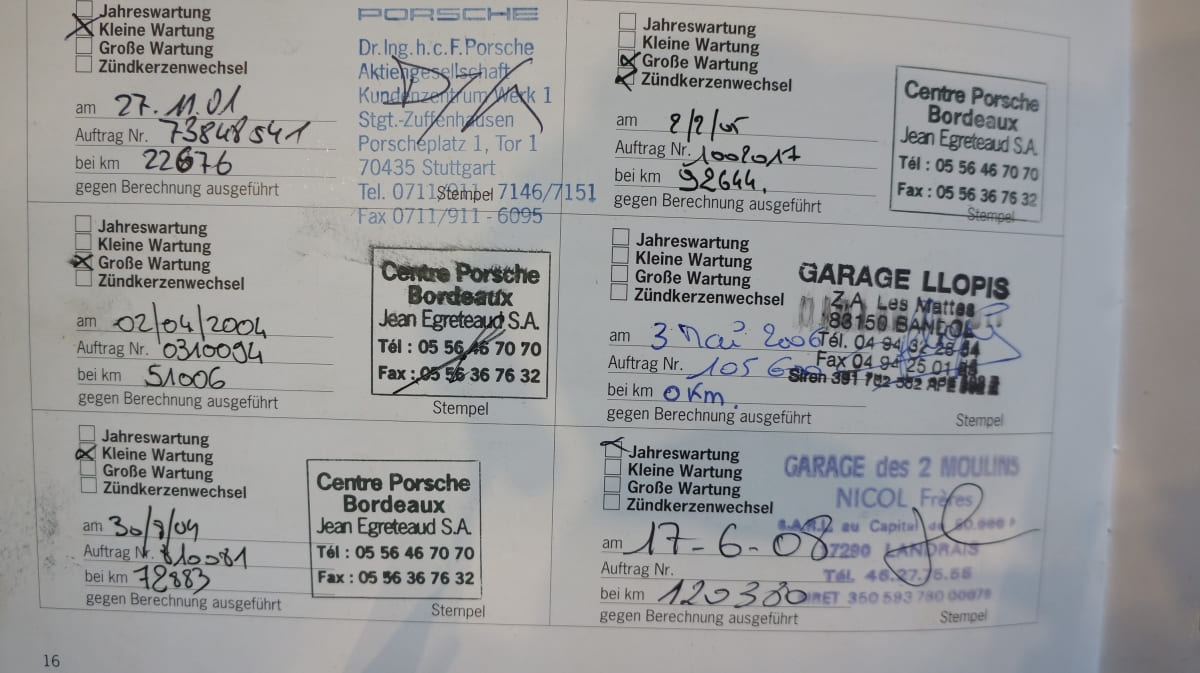 Jahreswartung
Kleine Wartung
Große Wartung
Zündkerzenwechsel
am 27.11.01
Auftrag Nr. 73848541
bei km 22676
gegen Berechnung ausgeführt
PORSCHE
Dr.Ing.h.c.F.Porsche
Aktiengesellschaft
Kundenzentrum Werk 1
Stgt.-Zuffenhausen
Porscheplatz 1, Tor 1
70435 Stuttgart
Tel. 0711/911- 7146/7151
Stempel
Fax 0711/911 - 6095
Jahreswartung
Kleine Wartung
Große Wartung
Zündkerzenwechsel
am 02/04/2004
Auftrag Nr. 0310094
bei km 51006
gegen Berechnung ausgeführt
Centre Porsche
Bordeaux
Jean Egreteaud S.A.
Tél : 05 56 46 70 70
Fax : 05 56 36 76 32
Stempel
Jahreswartung
Kleine Wartung
Große Wartung
Zündkerzenwechsel
am 30/8/04
Auftrag Nr. 810081
bei km 72883
gegen Berechnung ausgeführt
Centre Porsche
Bordeaux
Jean Egreteaud S.A.
Tél : 05 56 46 70 70
Fax : 05 56 36 76 32
Stempel
16
Jahreswartung
Kleine Wartung
Große Wartung
Zündkerzenwechsel
am 2/2/05
Auftrag Nr. 1002017
bei km 92644.
gegen Berechnung ausgeführt
Centre Porsche
Bordeaux
Jean Egreteaud S.A.
Tél : 05 56 46 70 70
Fax : 05 56 36 76 32
Stempel
Jahreswartung
Kleine Wartung
Große Wartung
Zündkerzenwechsel
am 3 Mai 2006
Auftrag Nr. 105
bei km 0 Km.
gegen Berechnung ausgeführt
GARAGE LLOPIS
Z.A. Les Mattes
83150 BANDOL
Tél. 04 94 32
Fax 04 94 25 01
Siren 391 APE
Stempel
Jahreswartung
Kleine Wartung
Große Wartung
Zündkerzenwechsel
am 17-6-08
Auftrag Nr.
bei km 120380
gegen Berechnung ausgeführt
GARAGE des 2 MOULINS
NICOL Frères
S.A.R.L. au Capital de
LANDRAIS
Tél. 46.27.75.55
350 593 780
Stempel